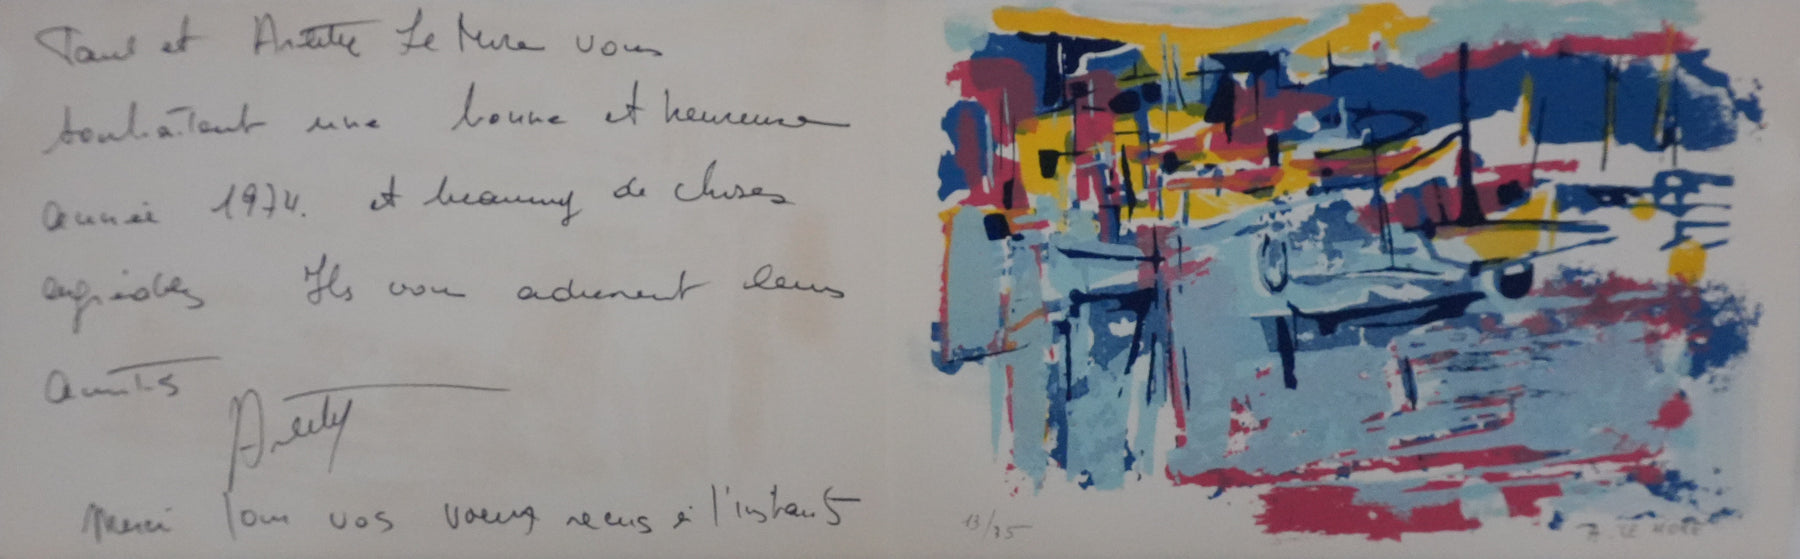 Paul et Arlette Le More vous
souhaitent une bonne et heureuse
année 1974. et beaucoup de choses
agréables Ils vous adressent leurs
amitiés
Arlette
Merci pour vos voeux reçus à l'instant
13/75
A. LE MORE